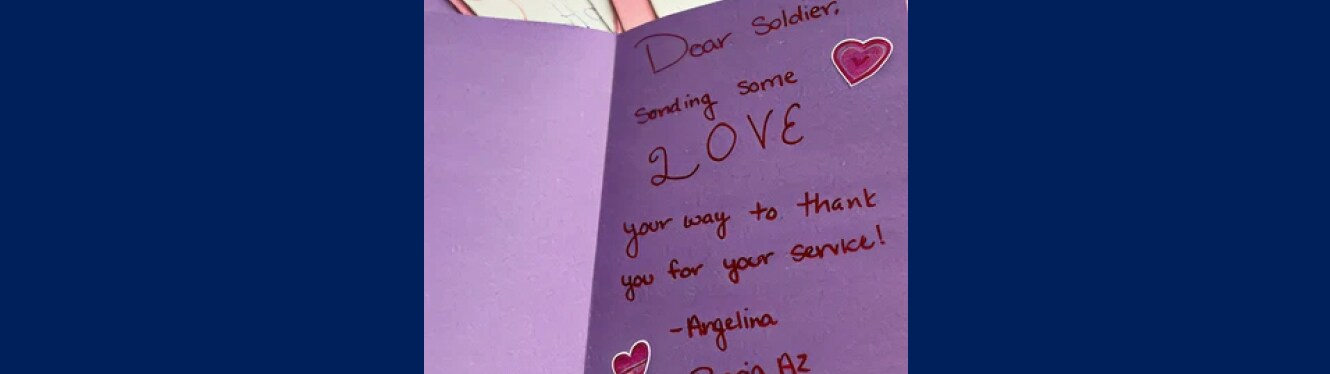 Dear Soldier,
Sending some
LOVE
your way to thank
you for your service!
-Angelina
AZ